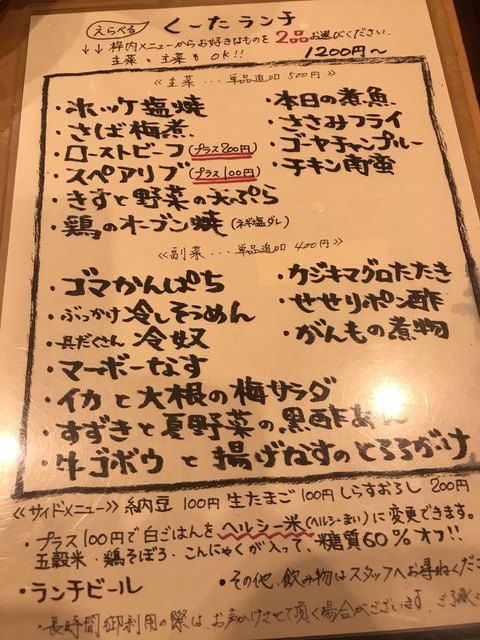 えらべる くーたランチ
↓↓枠内メニューからお好きなものを2品お選びください.
主菜と主菜もOK!! 1200円〜
≪主菜...単品追加500円≫
・ホッケ塩焼
・さば梅煮
・ローストビーフ(プラス200円)
・スペアリブ(プラス100円)
・きすと野菜の天ぷら
・鶏のオーブン焼(ネギ塩ダレ)
・本日の煮魚
・ささみフライ
・ゴーヤチャンプルー
・チキン南蛮
≪副菜...単品追加400円≫
・ゴマかんぱち
・ぶっかけ冷しそうめん
・具だくさん冷奴
・マーボーなす
・イカと大根の梅サラダ
・すずきと夏野菜の黒酢あん
・牛ゴボウと揚げなすのとろろがけ
・カジキマグロたたき
・せせりポン酢
・がんもの煮物
≪サイドメニュー≫ 納豆100円 生たまご100円 しらすおろし200円
・プラス100円で白ごはんをヘルシー米(ヘルシーまい)に変更できます。
五穀米・鶏そぼろ・こんにゃくが入って、糖質60%オフ!!
・ランチビール
・その他、飲み物はスタッフへお尋ねくださ
・長時間御利用の際は、お声かけさせて頂く場合がございます。